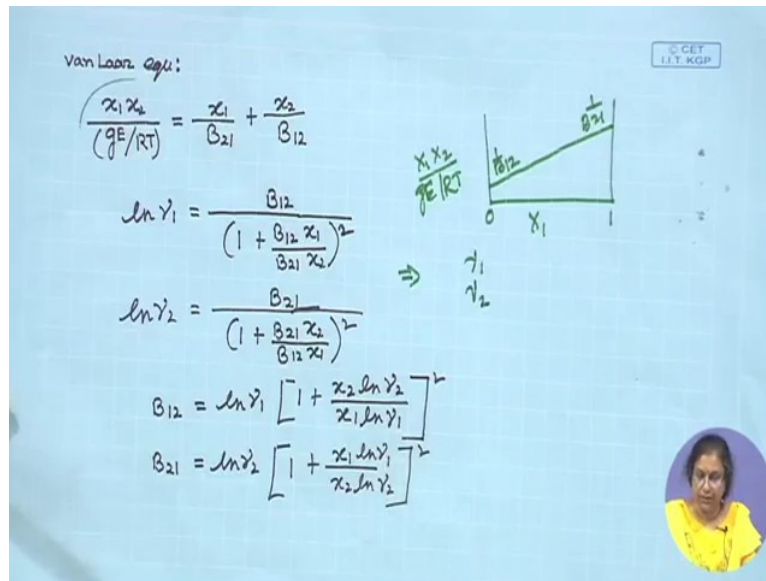 © CET
I.I.T. KGP
van Laar equ:
x₁x₂/(gE/RT) = x₁/B₂₁ + x₂/B₁₂
ln γ₁ = B₁₂/(1 + B₁₂ x₁/B₂₁ x₂)²
ln γ₂ = B₂₁/(1 + B₂₁ x₂/B₁₂ x₁)²
B₁₂ = ln γ₁ [1 + x₂ ln γ₂/x₁ ln γ₁]²
B₂₁ = ln γ₂ [1 + x₁ ln γ₁/x₂ ln γ₂]²
1/B₂₁
x₁x₂/gE/RT
1/B₁₂
0 x₁ 1
⇒ γ₁
γ₂